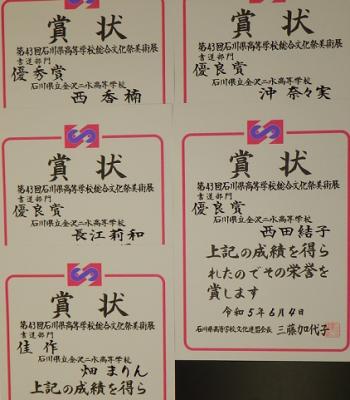 賞状
第43回石川県高等学校総合文化祭美術展
書道部門
優秀賞
石川県立金沢二水高等学校
西 香楠
賞状
第43回石川県高等学校総合文化祭美術展
書道部門
優良賞
石川県立金沢二水高等学校
沖 奈々実
賞状
第43回石川県高等学校総合文化祭美術展
書道部門
優良賞
石川県立金沢二水高等学校
長江莉和
賞状
第43回石川県高等学校総合文化祭美術展
書道部門
優良賞
石川県立金沢二水高等学校
西田結子
上記の成績を得ら
れたのでその栄誉を
賞します
令和5年6月4日
石川県高等学校文化連盟会長 三藤加代子
賞状
第43回石川県高等学校総合文化祭美術展
書道部門
佳作
石川県立金沢二水高等学校
畑 まりん
上記の成績を得ら